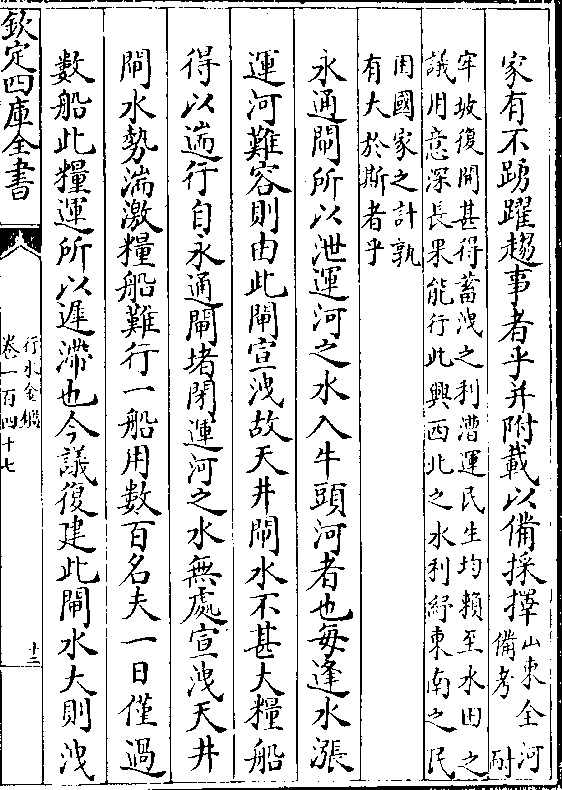 家有不踴躍趨事者乎并附載以備採擇山東全河
備考　耐
牢坡復開甚得蓄洩之利漕運民生均賴至水田之
議用意深長果能行此興西北之水利紓東南之民
用國家之計孰
有大於斯者乎
永通閘所以泄運河之水入牛頭河者也每逢水漲
運河難容則由此閘宣洩故天井閘水不甚大糧船
得以遄行自永通閘堵閉運河之水無處宣洩天井
閘水勢湍激糧船難行一船用數百名夫一日僅過
數船此糧運所以遲滯也今議復建此閘水大則洩
欽定四庫全書
行水金鑑
卷一百四十七
十二